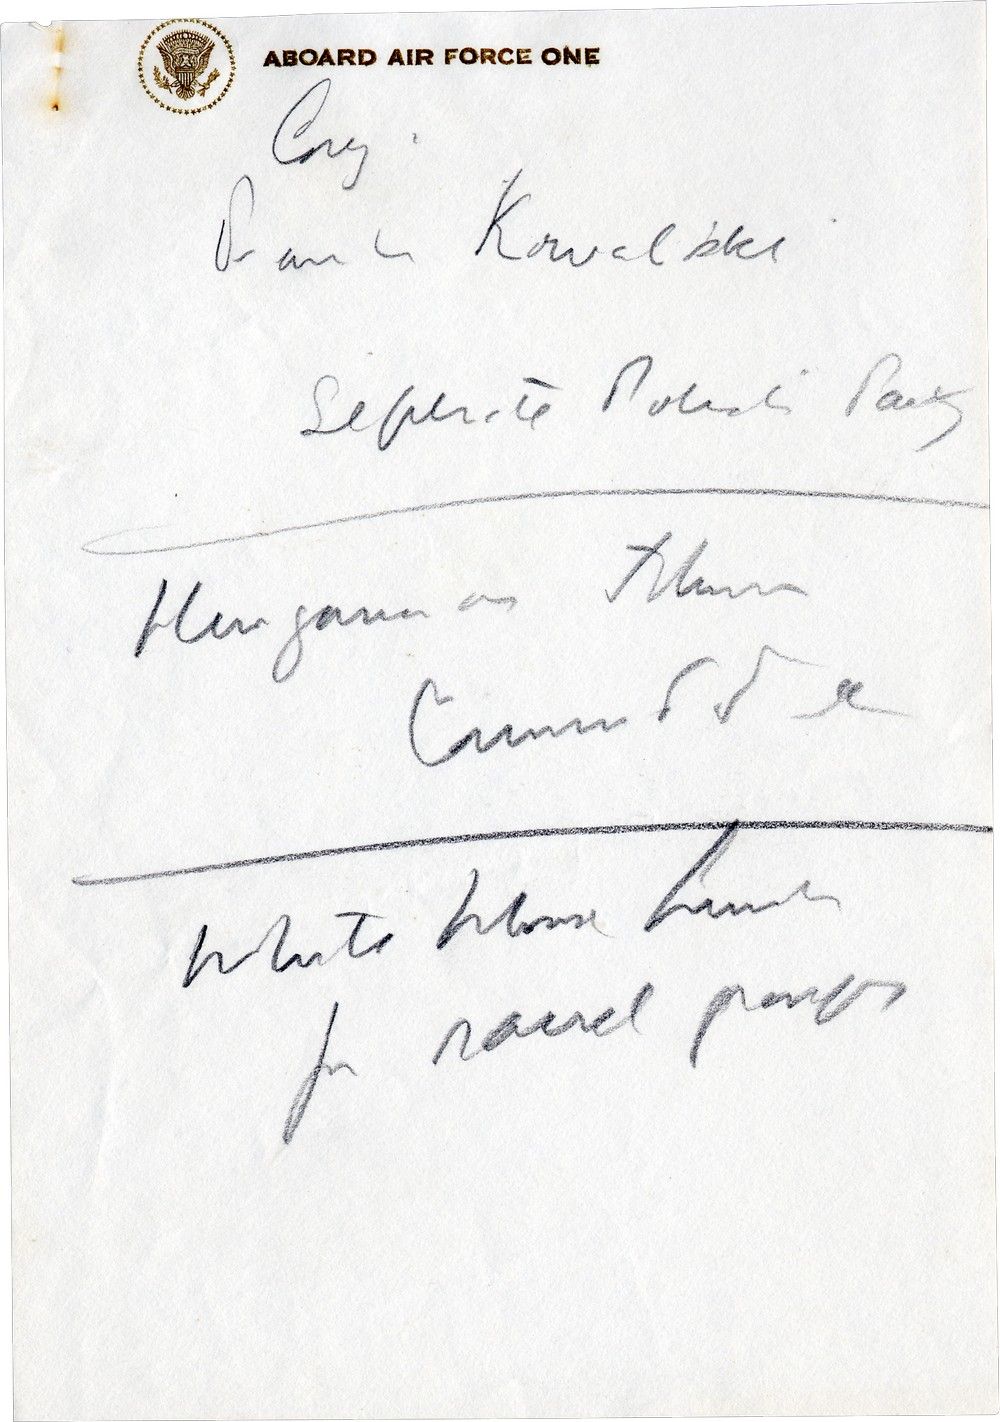 ABOARD AIR FORCE ONE
Cong.
Frank Kowalski
Seperate Polish Party
Hungarian
Committee
White House Lunch
for racial groups